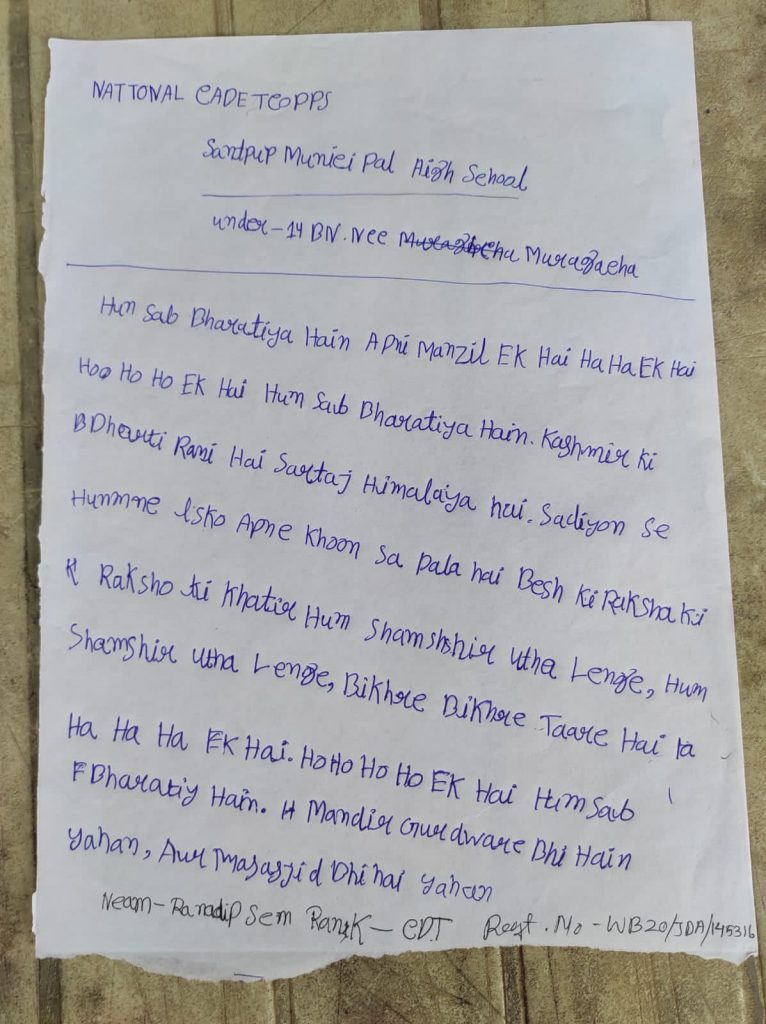 NATTONAL CADETCOPPS
Santpup Muniei pal High School
under-14 BN. Nee Muragaeha
Hum Sab Bharatiya Hain Apni Manzil EK Hai Ha Ha EK Hai
Hoo Ho Ho EK Hai Hum Sab Bharatiya Hain. Kashmir Ki
BDharti Rani Hai Sartaj Himalaiya hai. Sadiyon Se
Hummne isko Apne Khoon Sa pala hai Besh Ki Raksha Ki
K Raksho Ki Khatir Hum Shamshshir Utha Lenge, Hum
Shamshir Utha Lenge, Bikhre Bikhre Taare Hai ta
Ha Ha Ha EK Hai. Ho Ho Ho Ho EK Hai Hum Sab
FBharatiy Hain. H Mandir Gurdware Bhi Hain
Yahan, Aur Masasjid Dhi hai yahan
Neam- Ranadip Sem Rank - CDT Regt. No - WB20/JDA/145316